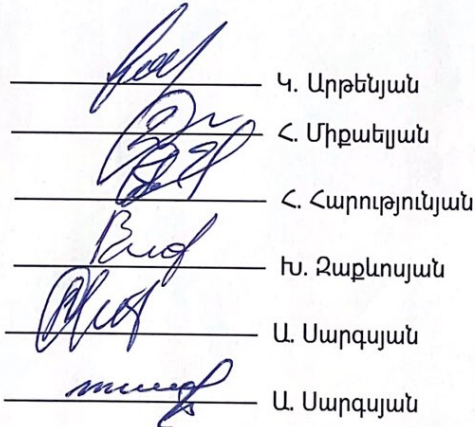 Կ. Արթենյան
Հ. Միքաելյան
Հ. Հարությունյան
Խ. Զաքևոսյան
Ա. Սարգսյան
Ա. Սարգսյան